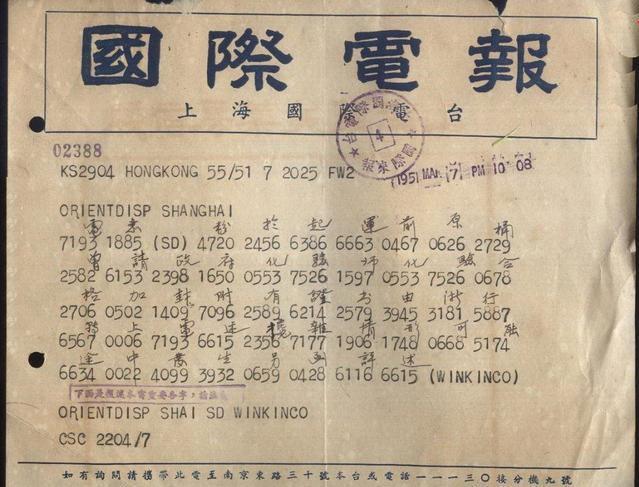 國際電報
上海國際電台
4
02388
KS2904 HONGKONG 55/51 7 2025 FW2
1951 MAR (7) PM 10 08
ORIENTDISP SHANGHAI
電悉 粉於起運前原桶
7193 1885 (SD) 4720 2456 6386 6663 0467 0626 2729
曾請政府化驗師化驗合
2582 6153 2398 1650 0553 7526 1597 0553 7526 0678
格加封附有證書由浙行
2706 0502 1409 7096 2589 6214 2579 3945 3181 5887
上電述 雜情形可能
6567 0006 7193 6615 2356 7177 1906 1748 0668 5174
途中發生另函詳述
6634 0022 4099 3932 0659 0428 6116 6615 (WINKINCO)
下面是複述本電重要各字，請注意
ORIENTDISP SHAI SD WINKINCO
CSC 2204/7
如有詢問請攜帶此電至南京東路三十號本台或電話一一一三〇接分機九號